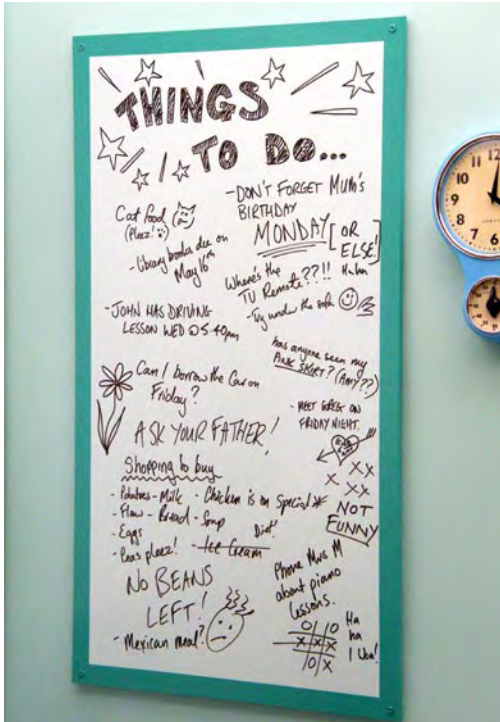 THINGS
TO DO...
-DON'T FORGET MUM'S
BIRTHDAY
MONDAY [OR
ELSE!]
Ha ha
Cat food
(Pleez!)
- Library books due on
May 16th
Where's the
TV Remote??!!
-Try under the sofa
-JOHN HAS DRIVING
LESSON WED @ 5.40pm
has anyone seen my
PINK SKIRT? (AMY??)
Can I borrow the Car on
Friday?
ASK YOUR FATHER!
- MEET GREG ON
FRIDAY NIGHT.
XX
X XX
NOT
FUNNY
Shopping to buy
- Potatoes - Milk - Chicken is on Special *
- Flour - Bread - Soup
- Eggs
Diet!
- Peas pleez! - Ice Cream
NO BEANS
LEFT!
- Mexican meal?
Phone Mrs M
about piano
lessons.
O | | O
X | X | X
| O | X
Ha
ha
I Won!
12
1
11
10
9
8
7
6
5